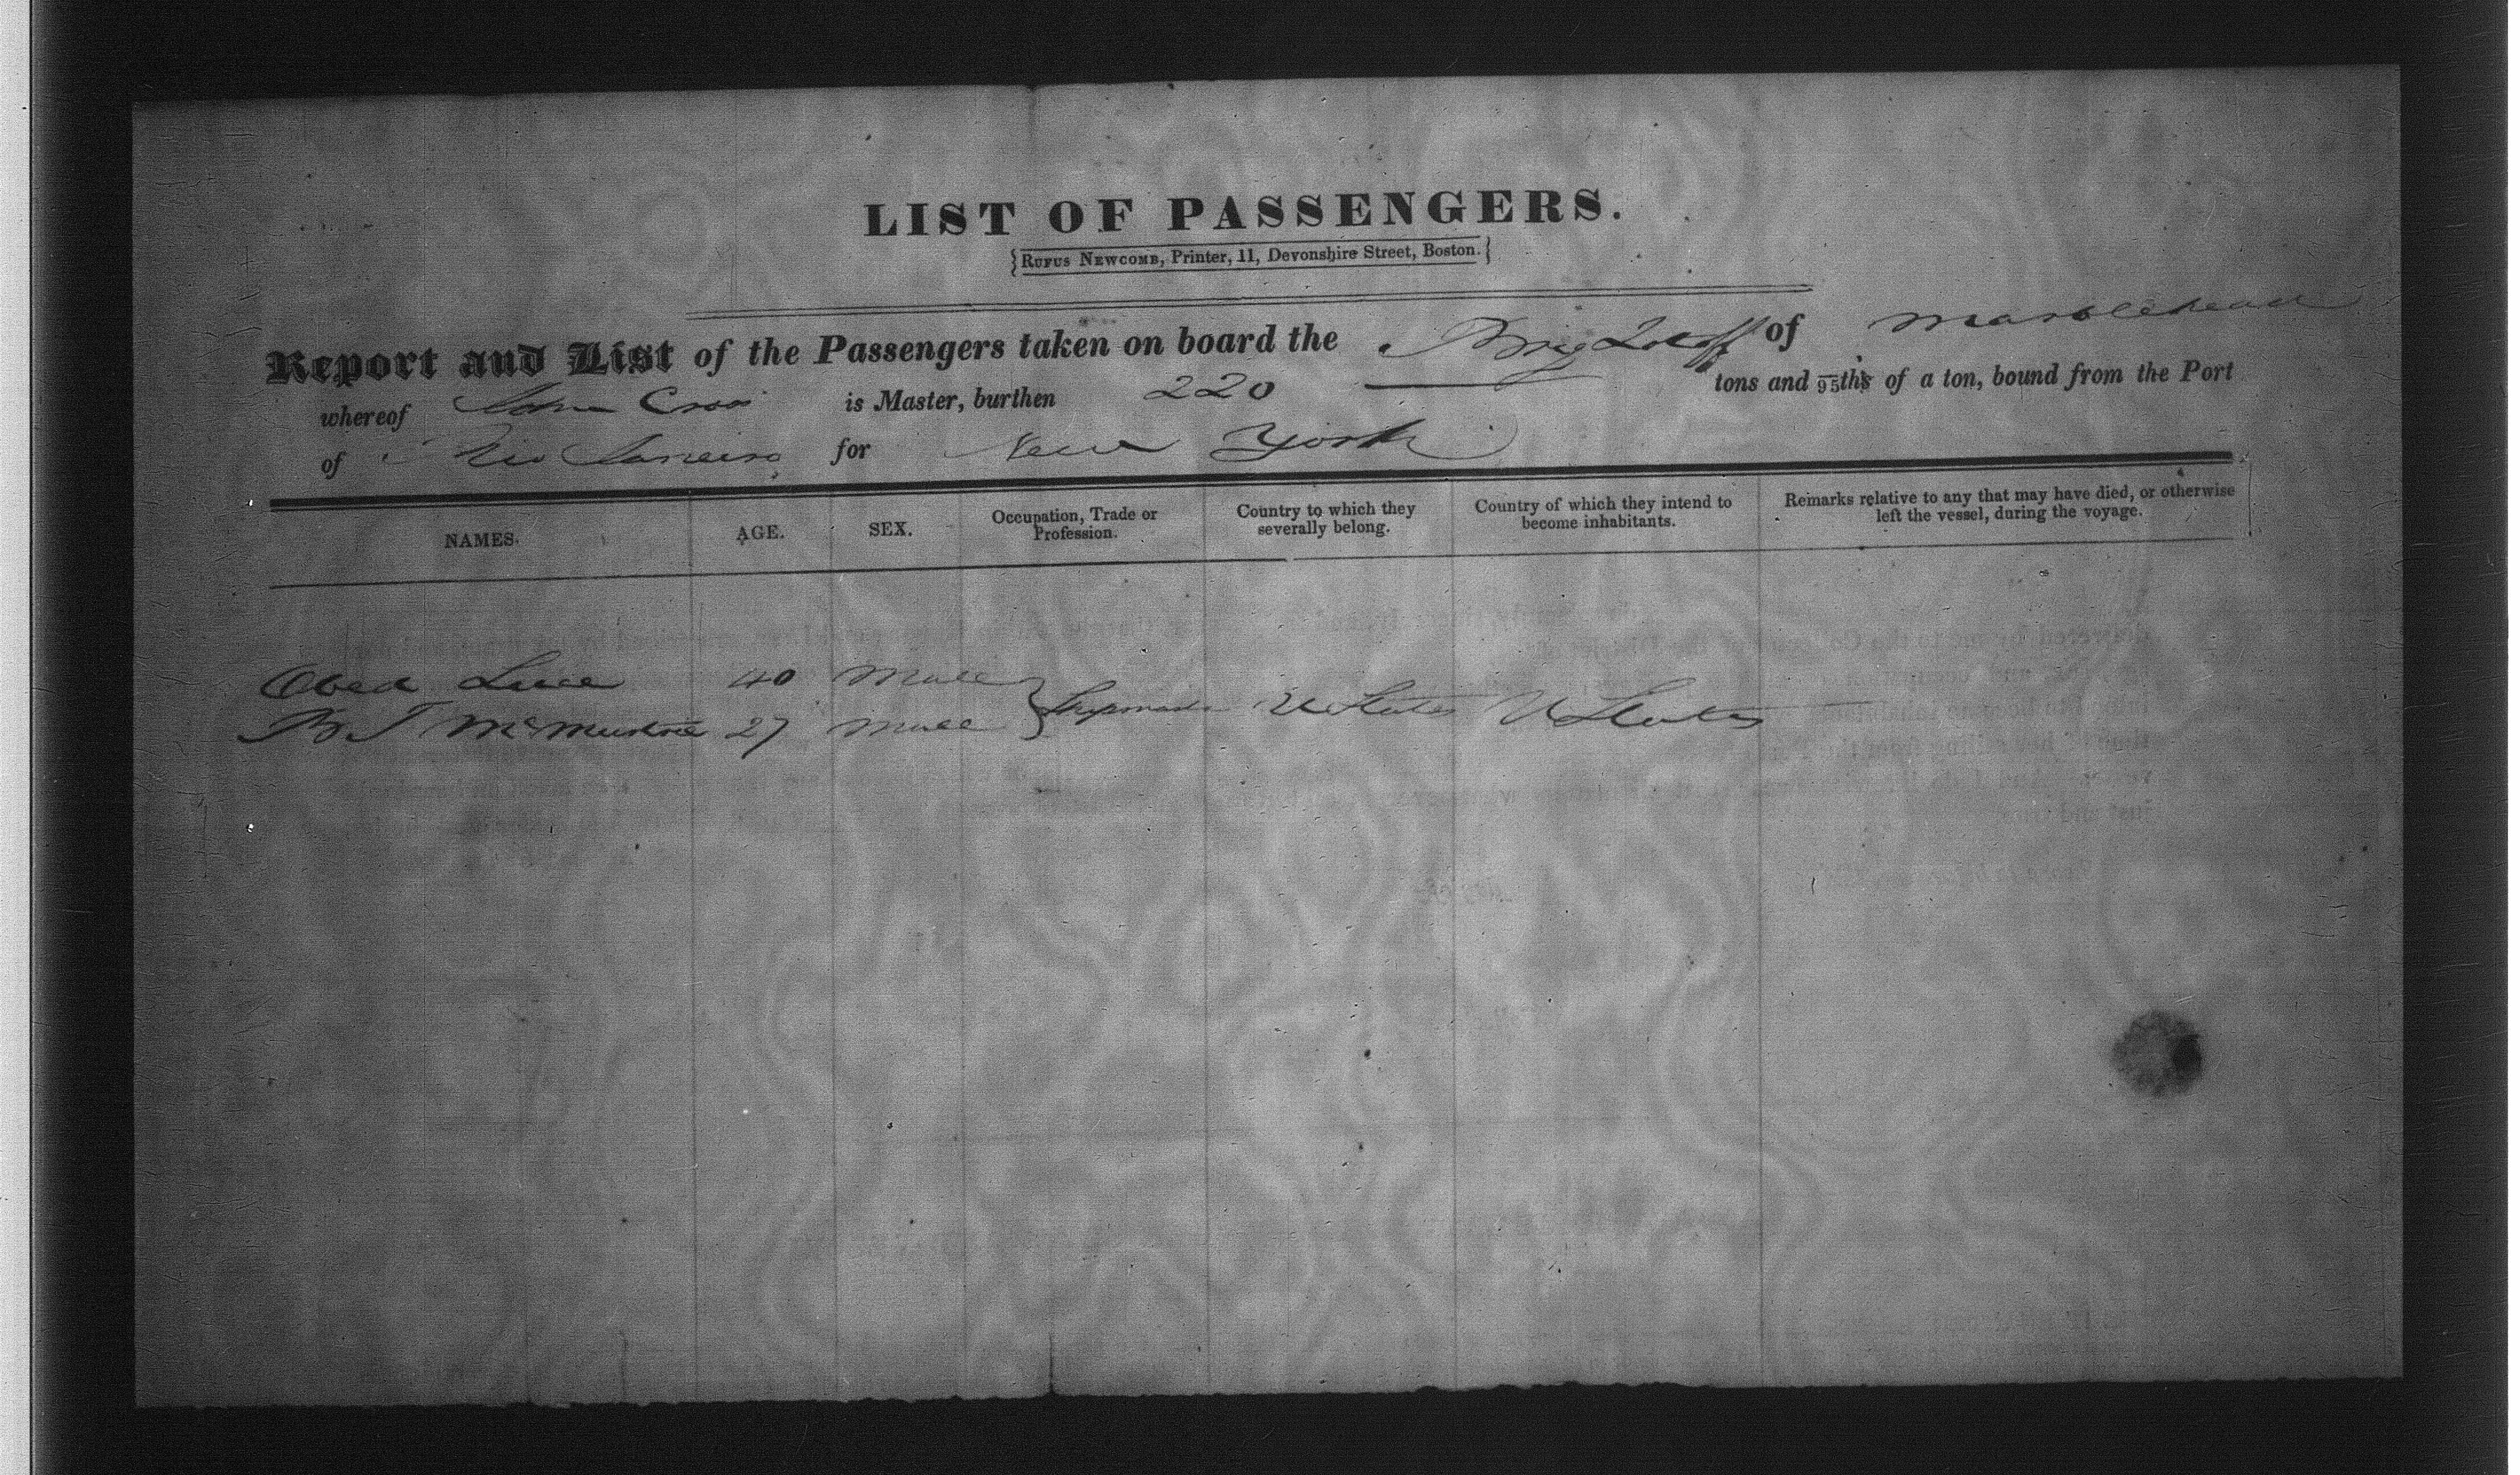 LIST OF PASSENGERS.
{RUFUS NEWCOMB, Printer, 11, Devonshire Street, Boston.}
Report and List of the Passengers taken on board the Brig of Marblehead
whereof John is Master, burthen 220 tons and 95ths of a ton, bound from the Port
of Rio Janeiro for New York
NAMES. AGE. SEX. Occupation, Trade or Profession. Country to which they severally belong. Country of which they intend to become inhabitants. Remarks relative to any that may have died, or otherwise left the vessel, during the voyage.
Obed Luce 40 Male
27 Male } U States U States